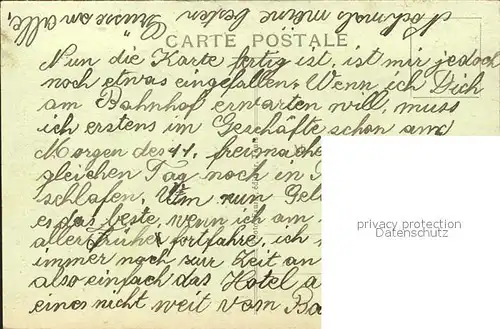 Nochmals meine besten Grüsse an alle,
CARTE POSTALE
Nun die Karte fertig ist, ist mir jedoch
noch etwas eingefallen. Wenn ich Dich
am Bahnhof erwarten will, muss
ich erstens im Geschäfte schon am
Morgen des 11. freimache
gleichen Tag noch in
schlafen. Um nun Gel
es das beste, wenn ich am
aller früher fortfahre, ich
immer noch zur Zeit an
also einfach das Hotel a
eines nicht weit vom Ba
privacy protection
Datenschutz